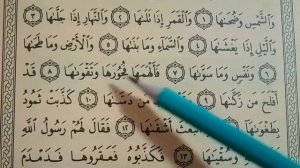 وَالشَّمْسِ وَضُحَىٰهَا ١ وَالْقَمَرِ إِذَا تَلَىٰهَا ٢ وَالنَّهَارِ إِذَا جَلَّىٰهَا
٣ وَاللَّيْلِ إِذَا يَغْشَىٰهَا ٤ وَالسَّمَاءِ وَمَا بَنَىٰهَا ٥ وَالْأَرْضِ وَمَا طَحَىٰهَا
٦ وَنَفْسٍ وَمَا سَوَّىٰهَا ٧ فَأَلْهَمَهَا فُجُورَهَا وَتَقْوَىٰهَا ٨ قَدْ
أَفْلَحَ مَن زَكَّىٰهَا ٩ مَن دَسَّىٰهَا ١٠ كَذَّبَتْ ثَمُودُ
بِطَغْوَىٰهَا أَشْقَىٰهَا ١٢ فَقَالَ لَهُمْ رَسُولُ اللَّهِ
وَسُقْيَـٰهَا ١٣ فَكَذَّبُوهُ فَعَقَرُوهَا فَدَمْدَمَ